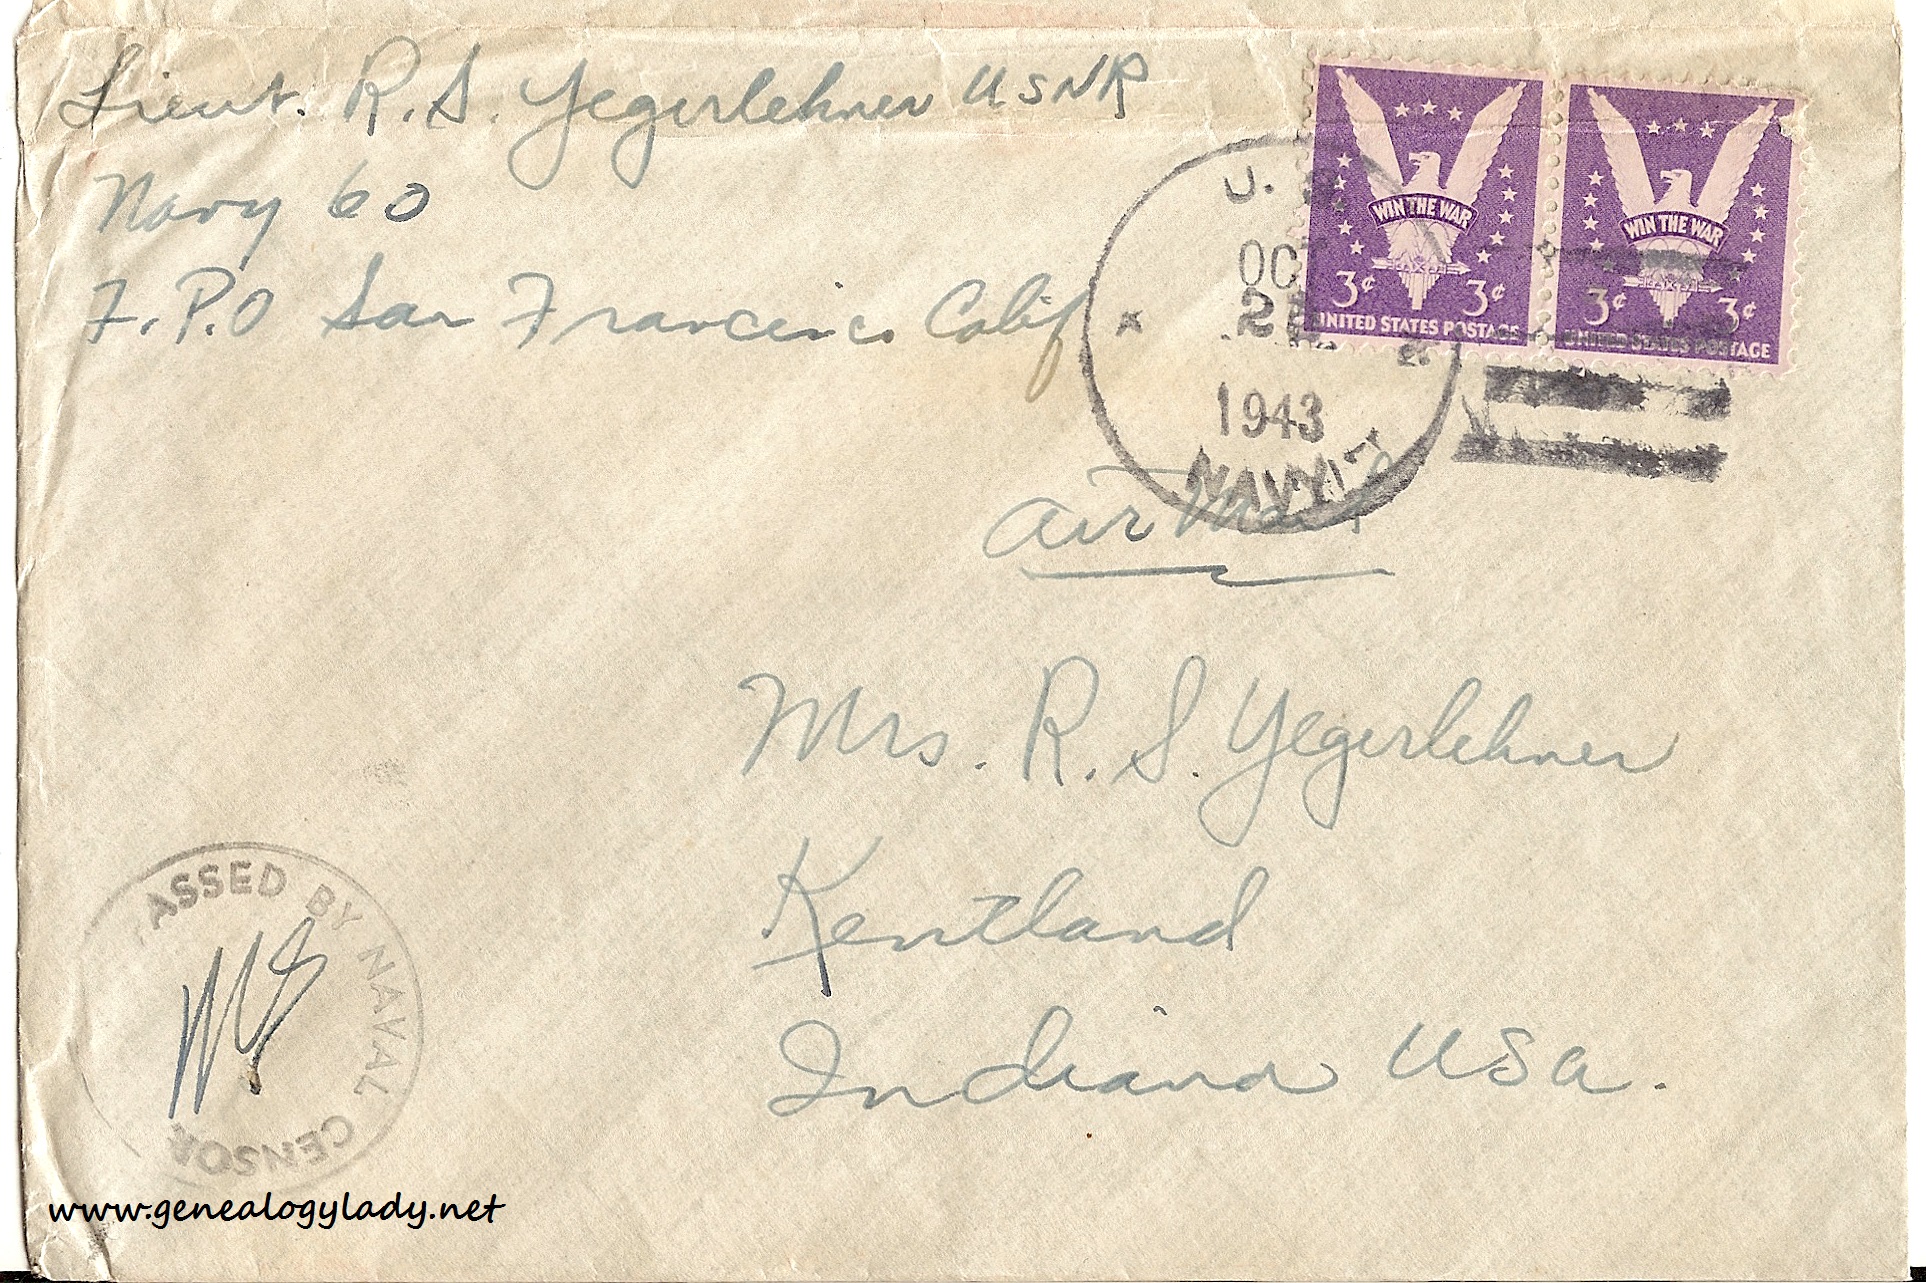 Lieut. R. S. Yegerlehner USNR
Navy 60
F.P.O San Francisco Calif
U.S.
OCT
1943
NAVY
WIN THE WAR
3¢ 3¢
UNITED STATES POSTAGE
WIN THE WAR
3¢ 3¢
UNITED STATES POSTAGE
Air Mail
Mrs. R. S. Yegerlehner
Kentland
Indiana USA.
PASSED BY NAVAL CENSOR
www.genealogylady.net